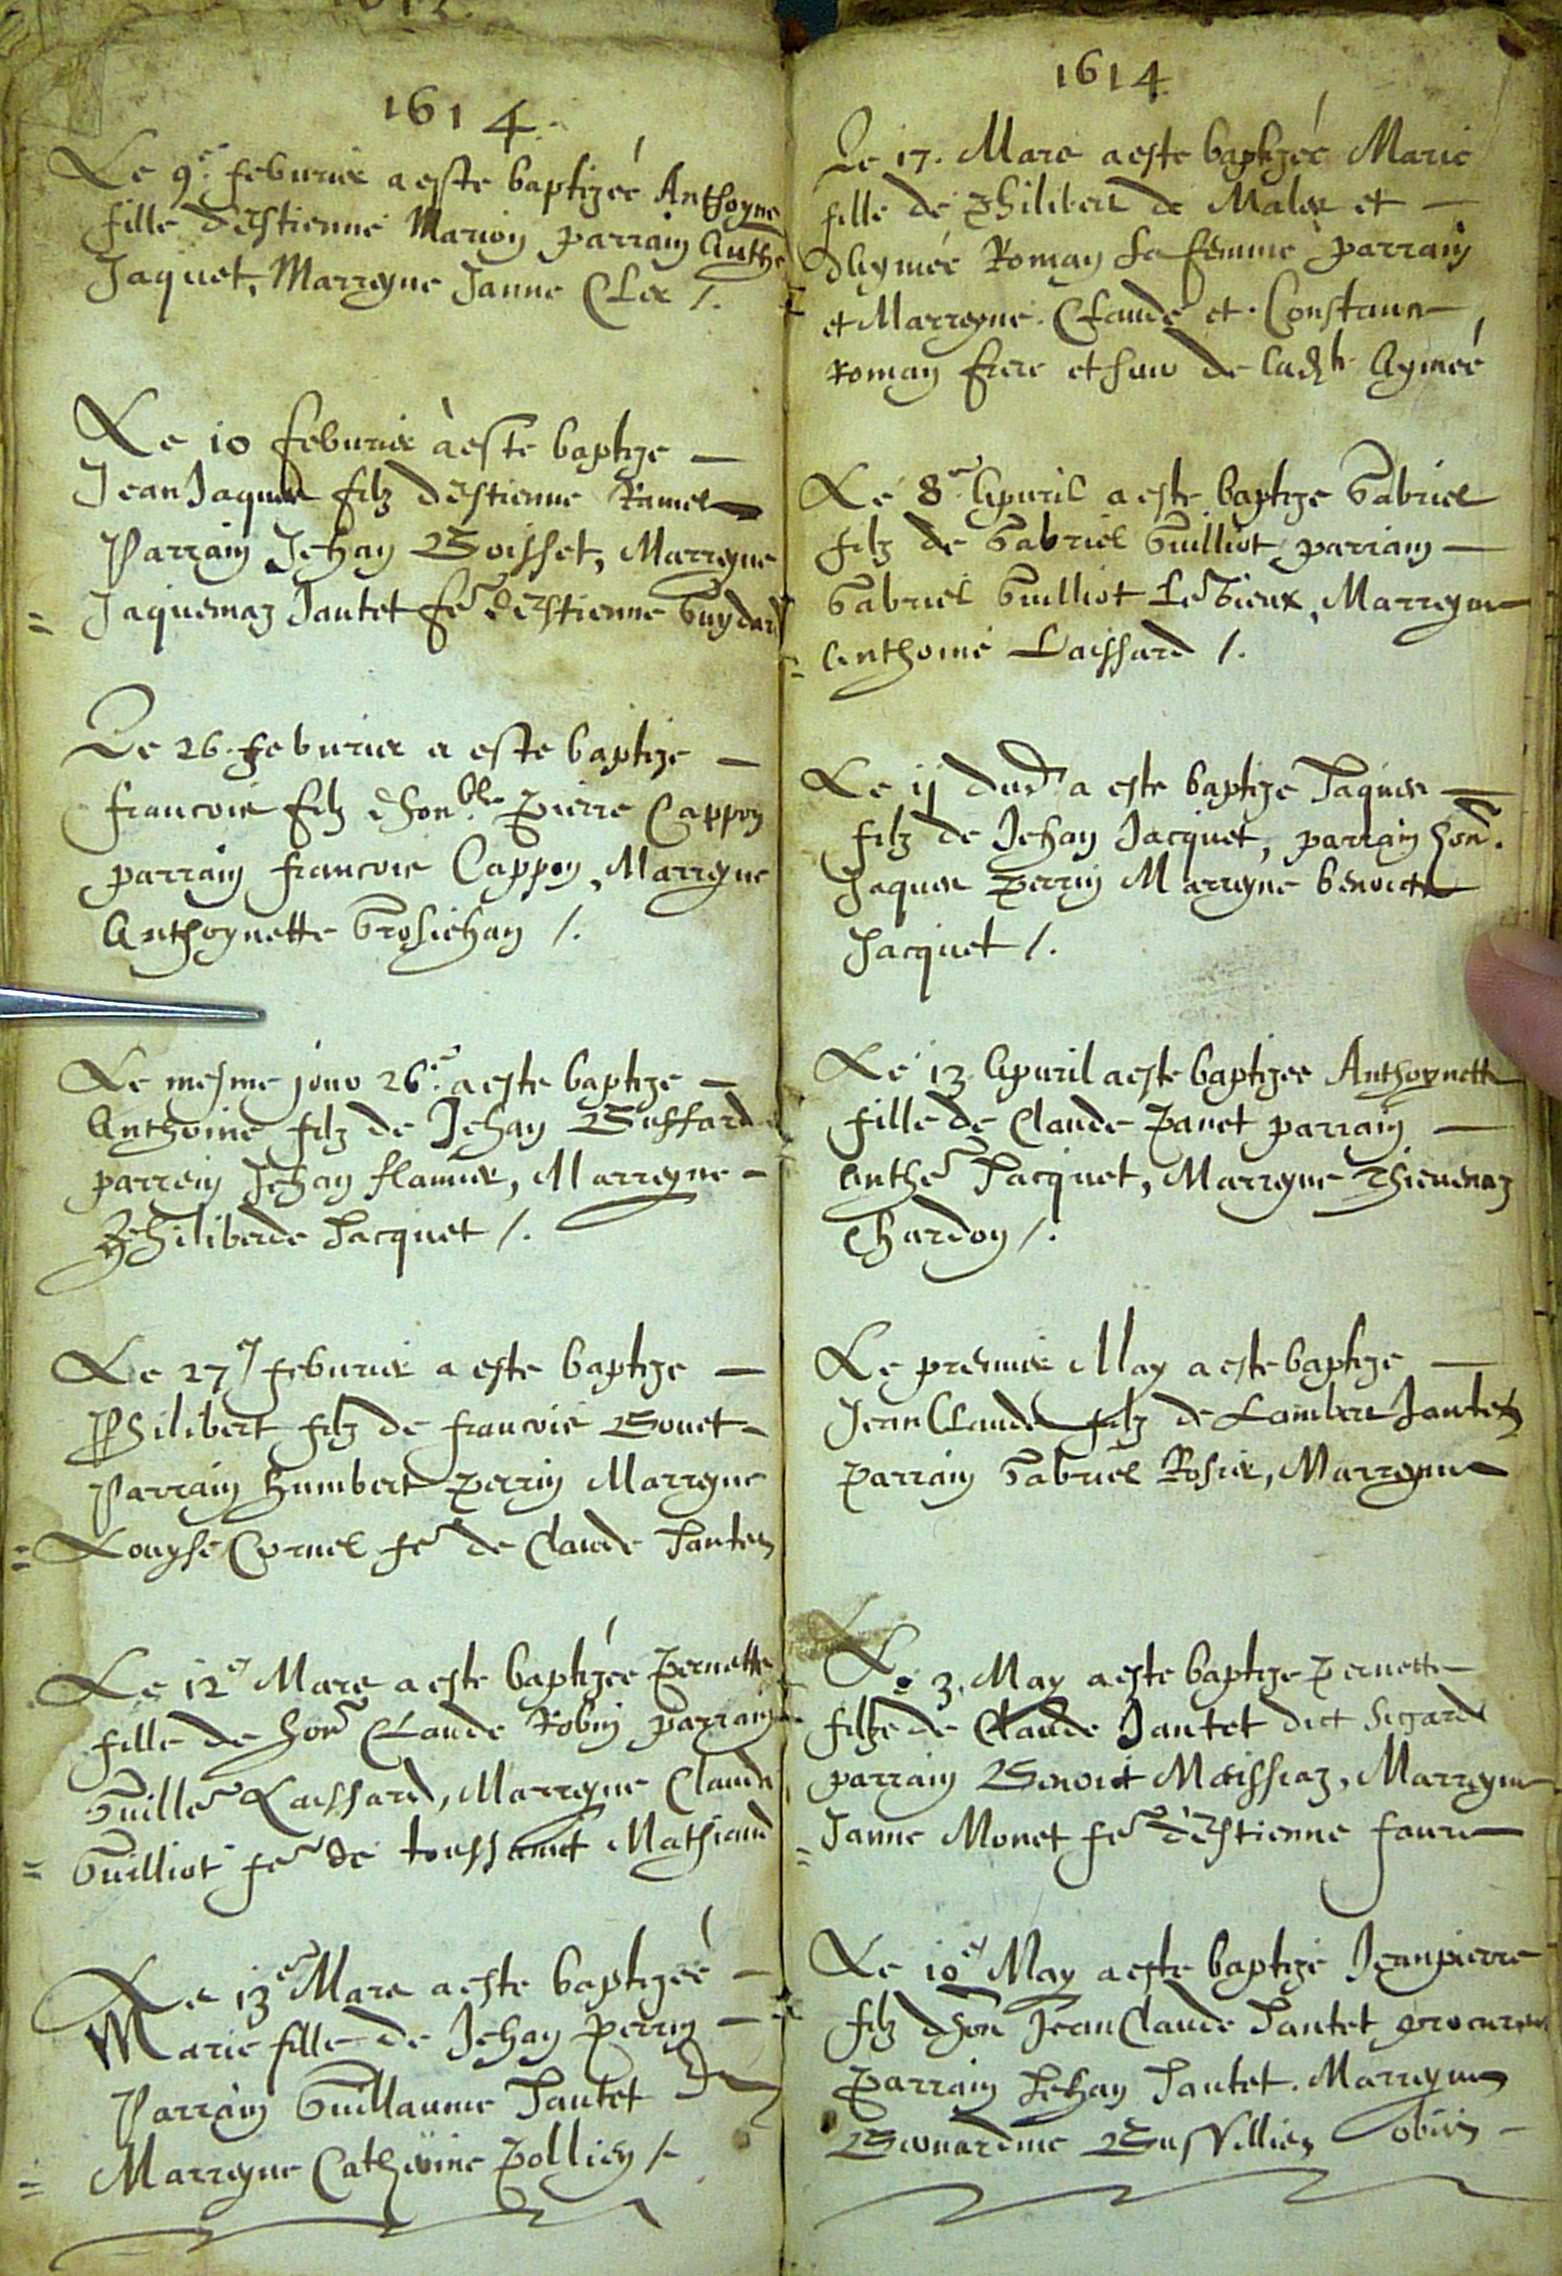 1614
Le 9e. feburier a este baptizeé Anthoyne
fille d'Estienne Marion parrain Anthe
Jaquet, Marreyne Janne Cler /.
Le 10 feburier à este baptize —
Jean Jaques filz d'Estienne Ramel
Parrain Jehan Boisset, Marreyne
Jaquemaz Jantet fe d'Estienne Guydard
Le 26. feburier a este baptize —
francois filz d'honble. Pierre Cappon
parrain francois Cappon, Marreyne
Anthoynette Grosjehan /.
Le mesme jour 26e. a este baptize —
Anthoine filz de Jehan Buffard
parrein Jehan flamier, Marreyne —
Philiberde Jacquet /.
Le 27e feburier a este baptize —
Philibert filz de francois Bouet —
Parrain humbert perrin Marreyne
Louyse Cornel fe de Claude Jantet
Le 12e Mars a este baptizée pernette
fille de honr Claude Robin parrain
Guille Laissard, Marreyne Claude
Guilliot fe de toussainct Mathieud
Le 13e Mars a este baptizeé —
Marie fille de Jehan perrin —
Parrain Guillaume Jantet
Marreyne Catherine pollien /.
1614
Le 17. Mars a este baptizeé Marie
fille de philibert de Maler et —
d'Aymeé Roman sa femme parrain
et Marreyne. Claude et. Constance
Roman frere et seur de ladte Aymeé
Le 8e. Apuril a este baptize Gabriel
filz de Gabriel Guilliot parrain —
Gabriel Guilliot le vieux, Marreyne
Anthoine Laissard /.
Le 11 dud a este baptize Jaques —
filz de Jehan Jacquet, parrain hon.
Jaques perrin Marreyne benoicte
Jacquet /.
Le 13 Apuril a este baptizee Anthoynette
fille de Claude panet parrain —
Anthe Jacquet, Marreyne Thieuenaz
Chardon /.
Le premier May a este baptize —
Jean Claude filz de Lambert Jantet
parrain Gabriel Rosier, Marreyne
Le 3. May a este baptize pernette
filhe de Claude Jantet dict sigard
parrain Benoict Maissiaz, Marreyne
Janne Monet fe d'Estienne faure
Le 10e May a este baptizé Jeanpierre
filz d'hon Jean Claude Jantet procureur
parrain Jehan Jantet. Marreyne
Bernardine obiit —